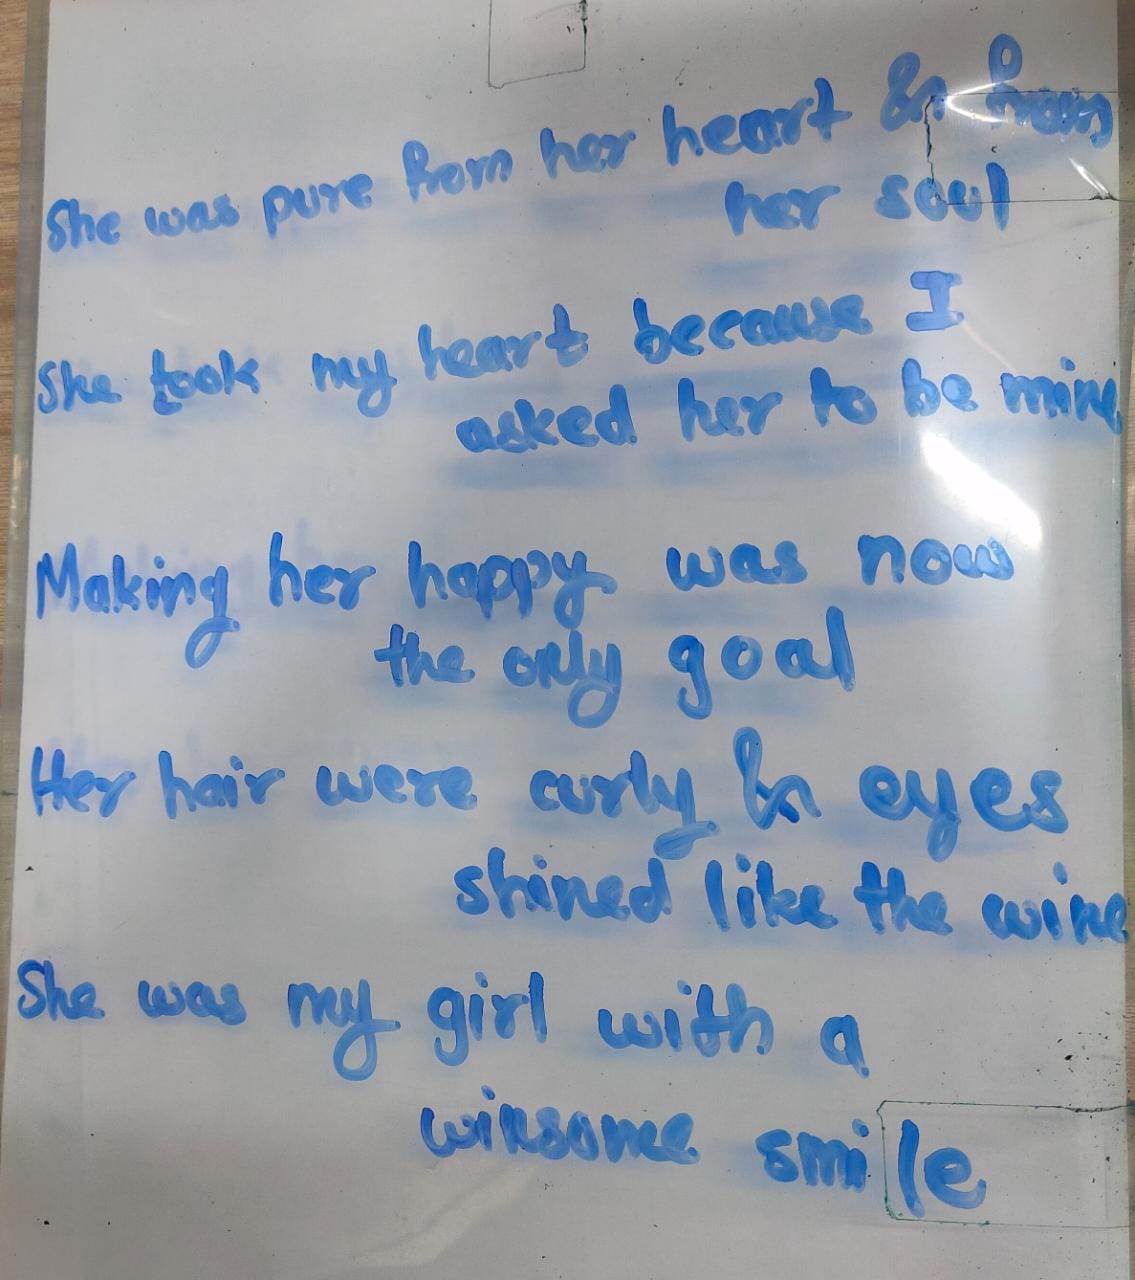 She was pure from her heart & from
her soul
She took my heart because I
asked her to be mine
Making her happy was now
the only goal
Her hair were curly & eyes
shined like the wine
She was my girl with a
winsome smile